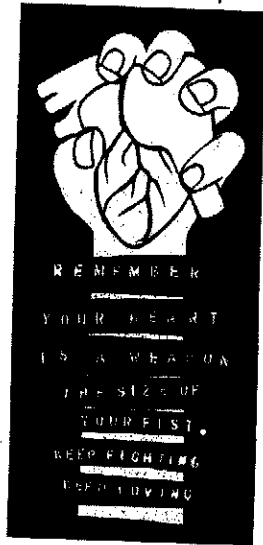 REMEMBER
YOUR HEART
IS A WEAPON
THE SIZE OF
YOUR FIST.
KEEP FIGHTING
KEEP LOVING